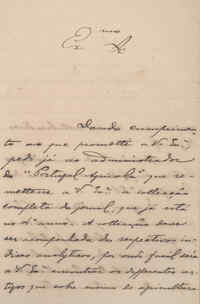 Ex.mo Sr.
Dando cumprimen-
to ao que prometti a V. Ex.ª
pedi já ao administrador
do "Portugal Agricola" que re-
mettesse a V. Ex.ª a collecção
completa do jornal, que já está
no 4º anno. A collecção deve
ser acompanhada dos respectivos in-
dices analyticos, por onde facil será
a V. Ex.ª encontrar os differentes ar-
tigos que sobre apicultura